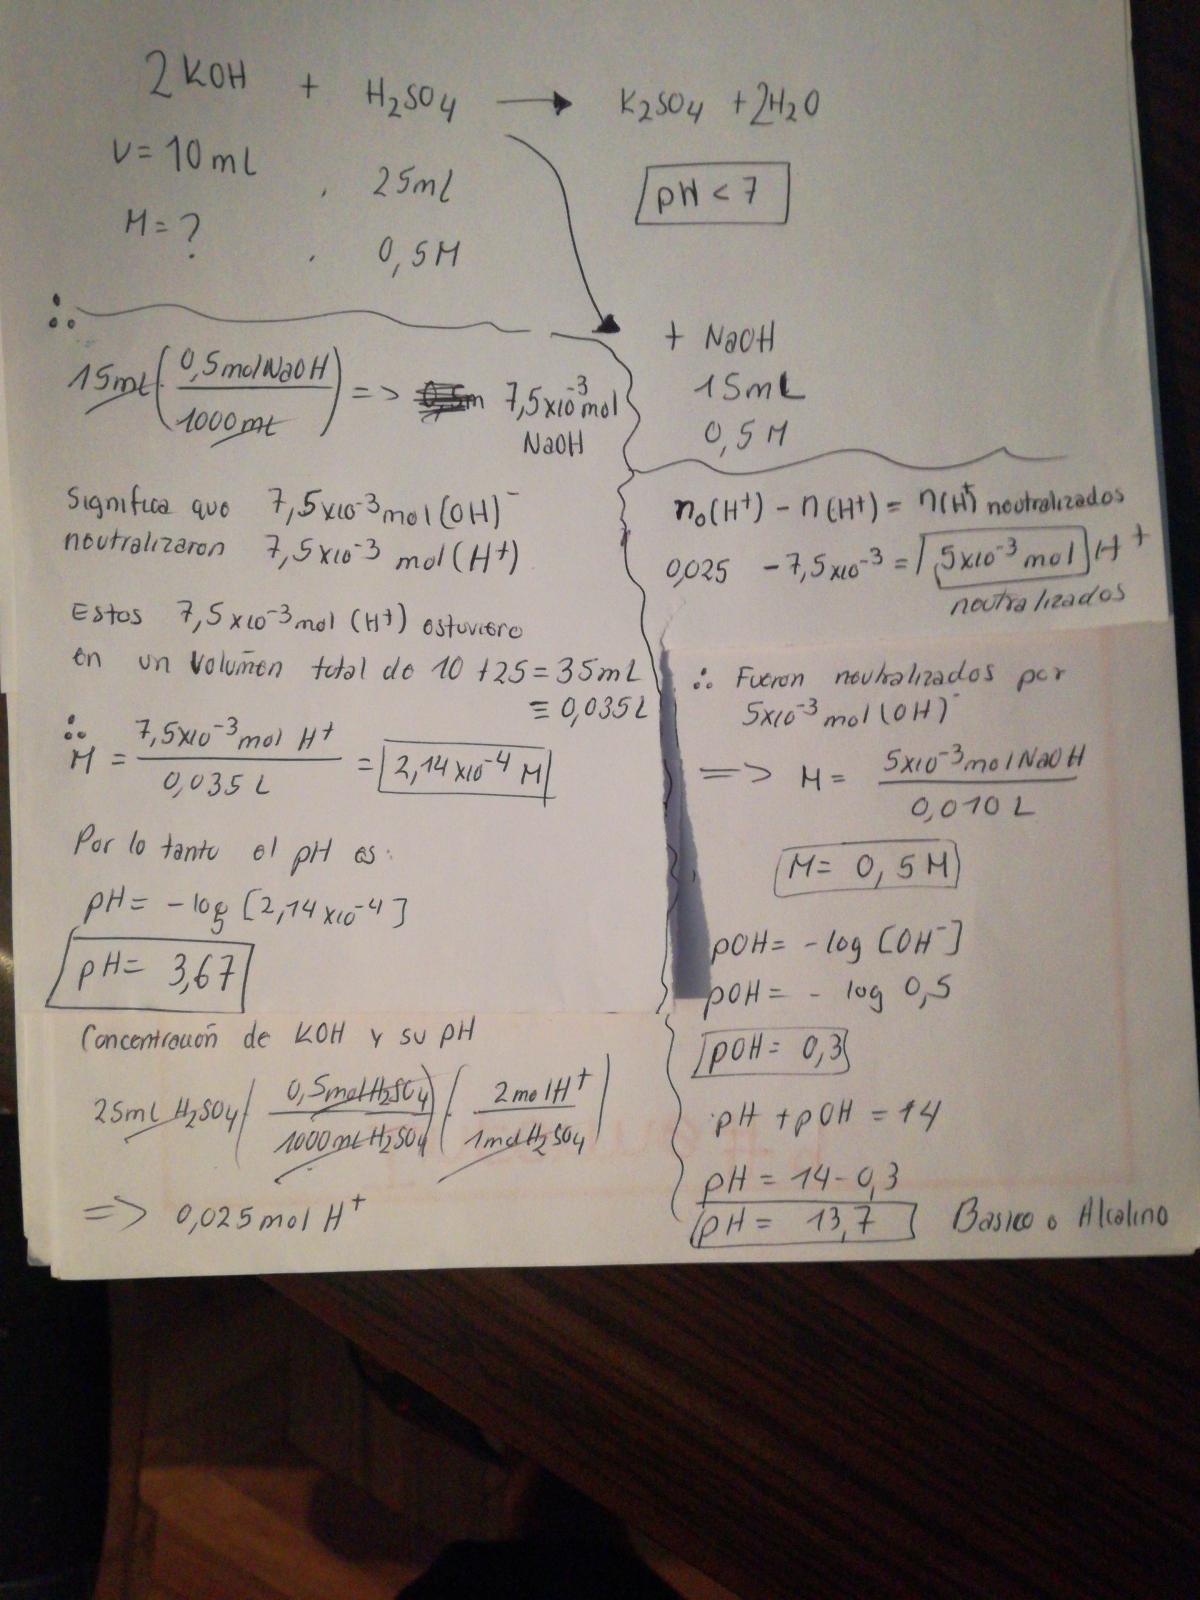 2KOH + H₂SO₄ → K₂SO₄ + 2H₂O
V = 10 mL . 25 mL
pH < 7
M = ? . 0,5 M
+ NaOH
15 mL
0,5 M
∴
15mL (0,5 mol NaOH / 1000 mL) => 7,5x10⁻³ mol
NaOH
Significa que 7,5x10⁻³ mol (OH)⁻
neutralizaron 7,5x10⁻³ mol (H⁺)
Estos 7,5x10⁻³ mol (H⁺) estuviero
en un volumen total de 10 + 25 = 35 mL
≡ 0,035 L
∴ M = 7,5x10⁻³ mol H⁺ / 0,035 L = 2,14x10⁻⁴ M
Por lo tanto el pH es:
pH = -log [2,14x10⁻⁴]
pH = 3,67
Concentración de KOH y su pH
25mL H₂SO₄ (0,5 mol H₂SO₄ / 1000 mL H₂SO₄) (2 mol H⁺ / 1 mol H₂SO₄)
=> 0,025 mol H⁺
n₀(H⁺) - n(H⁺) = n(H⁺) neutralizados
0,025 - 7,5x10⁻³ = 5x10⁻³ mol H⁺
neutralizados
∴ Fueron neutralizados por
5x10⁻³ mol (OH)⁻
=> M = 5x10⁻³ mol NaOH / 0,010 L
M = 0,5 M
pOH = - log [OH⁻]
pOH = - log 0,5
pOH = 0,3
pH + pOH = 14
pH = 14 - 0,3
pH = 13,7 Basico o Alcalino